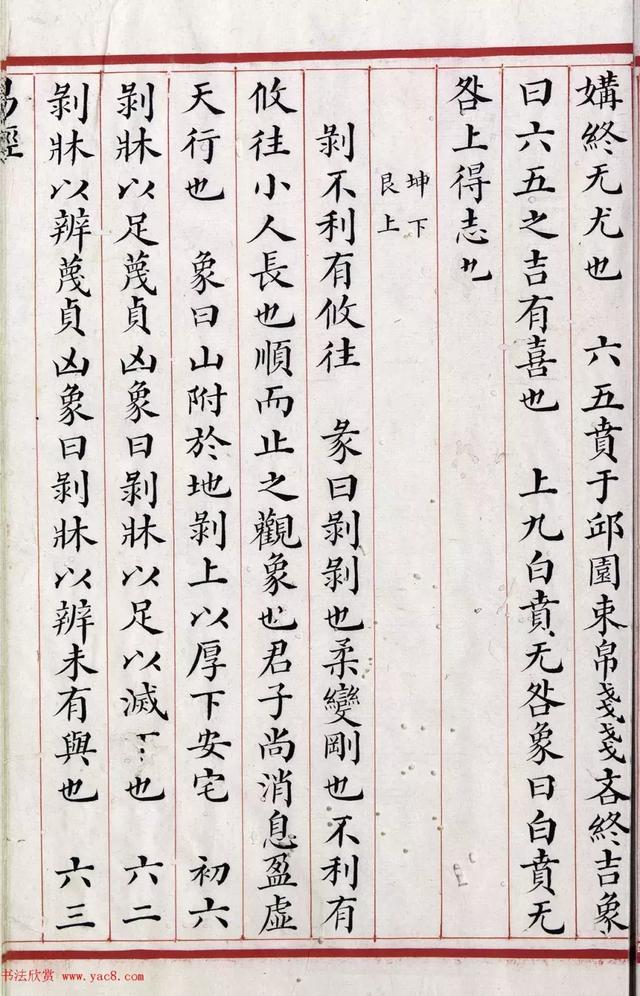 媾終无尤也　六五賁于邱園束帛戔戔吝終吉象
曰六五之吉有喜也　上九白賁无咎象曰白賁无
咎上得志也
坤下
艮上
剝不利有攸往　彖曰剝剝也柔變剛也不利有
攸往小人長也順而止之觀象也君子尚消息盈虛
天行也　象曰山附於地剝上以厚下安宅　初六
剝牀以足蔑貞凶象曰剝牀以足以滅下也　六二
剝牀以辨蔑貞凶象曰剝牀以辨未有與也　六三
易經
书法欣赏 www.yac8.com